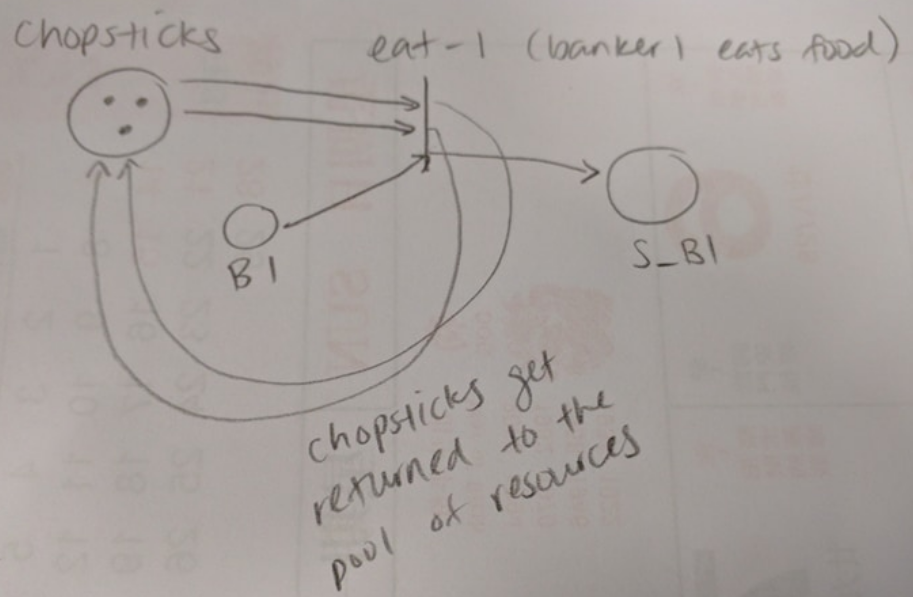 Chopsticks
eat-1 (banker1 eats food)
B1
S_B1
chopsticks get
returned to the
pool of resources